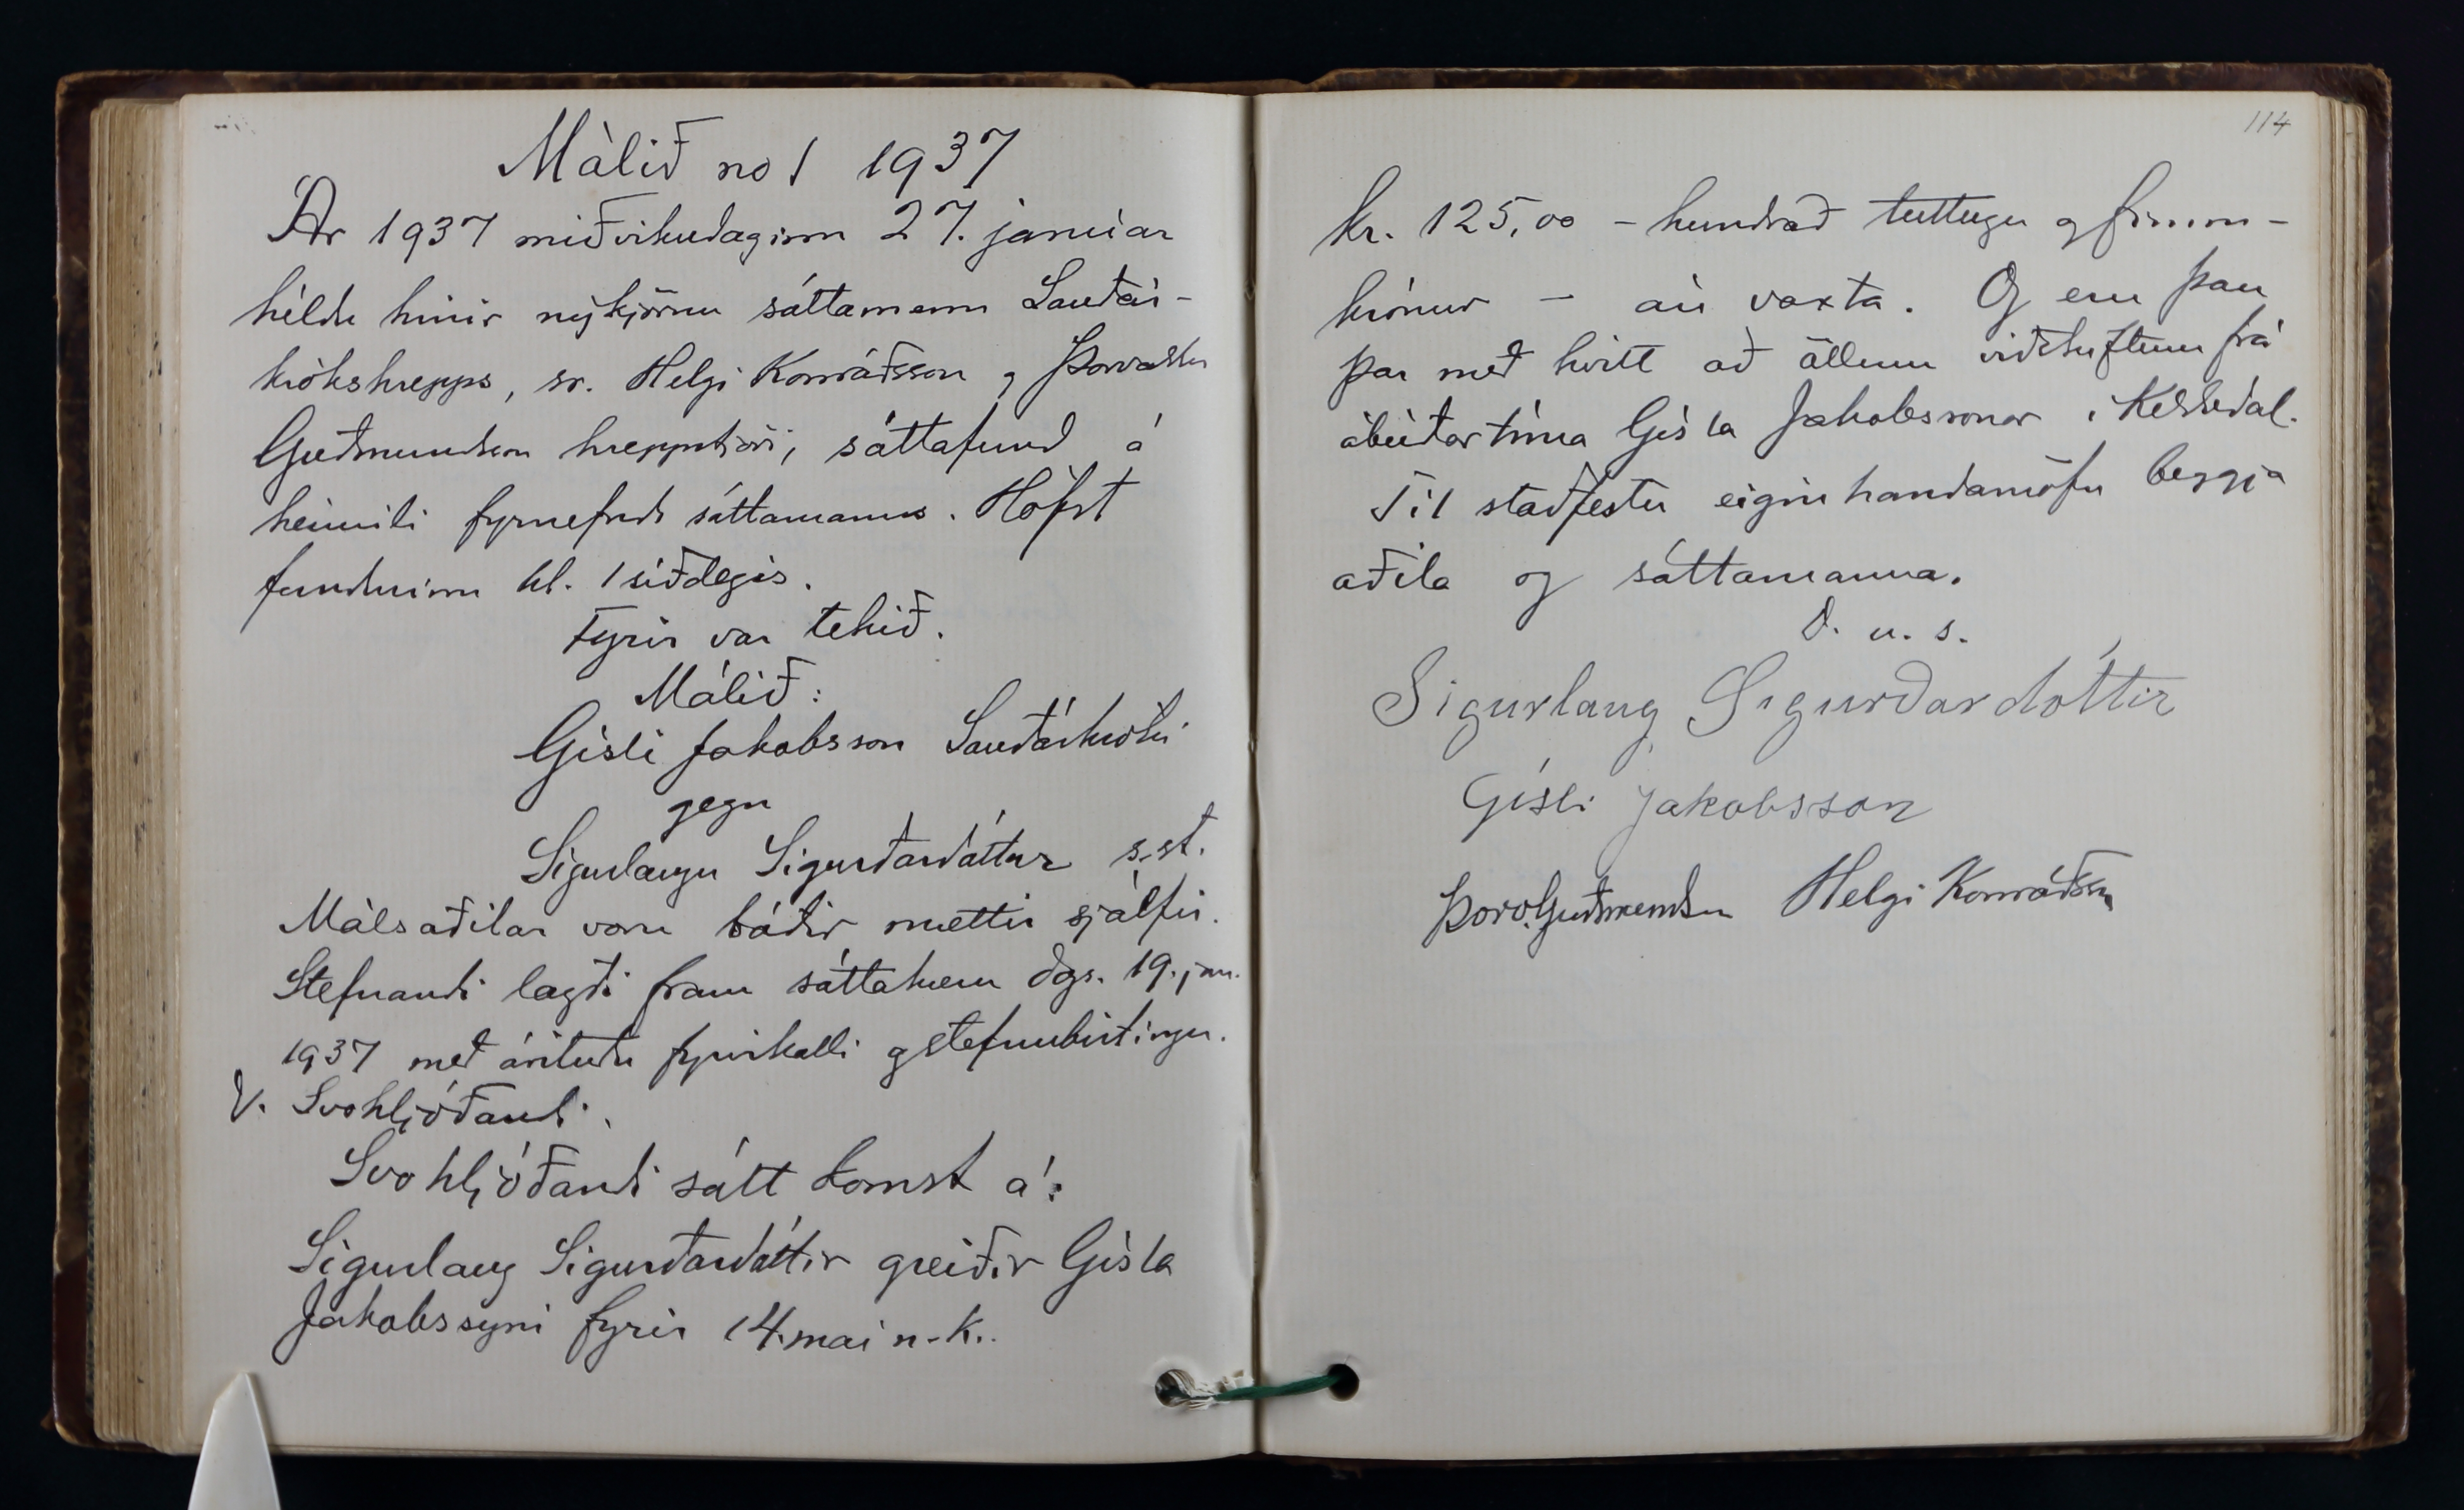 Málið no 1 1937
Ár 1937 miðvikudaginn 27. janúar
héldu hinir nýkjörnu sáttamenn Sauðár-
krókshrepps, sr. Helgi Konráðsson og Þorvaldur
Guðmundsson hreppstjóri, sáttafund á
heimili fyrnefnds sáttamanns. Hófst
fundurinn kl. 1 síðdegis.
Fyrir var tekið.
Málið:
Gísli Jakobsson Sauðárkróki
gegn
Sigurlaugu Sigurðardóttur s.st.
Málsaðilar voru báðir mættir sjálfir.
Stefnandi lagði fram sáttakæru dgs. 19. jan.
1937 með árituðu fyrirkalli og stefnubirtingu.
V. Svohljóðandi.
Svohljóðandi sátt komst á:
Sigurlaug Sigurðardóttir greiðir Gísla
Jakobssyni fyrir 14. maí n.k..
114
kr. 125,00 - hundrað tuttugu og fimm -
krónur - án vaxta. Og eru þau
þar með kvitt að öllum viðskiftum frá
ábúðartíma Gísla Jakobssonar í Keldudal.
Til staðfestu eiginhandarnöfn beggja
aðila og sáttamanna.
D. u. s.
Sigurlaug Sigurðardóttir
Gísli Jakobsson
Þorv. Guðmundsson Helgi Konráðsson